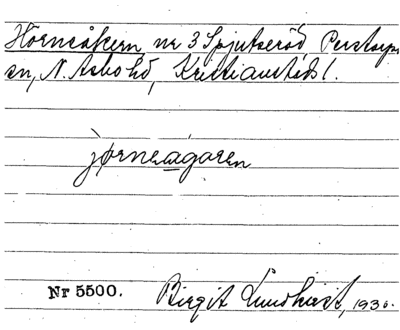 Hornsåkern nr 3 Spjutseröd, Perstorps
sn, N. Åsbo hd, Kristianstads l.
jørneágǝren
Nr 5500. Birgit Lundqvist, 1930.